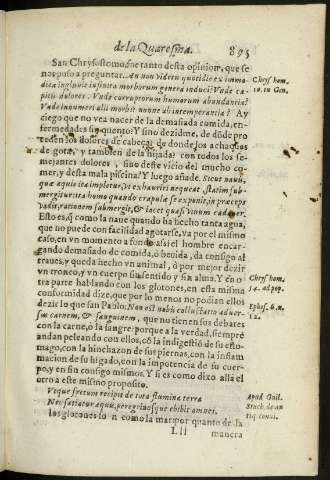 de la Quaresma. 895
San Chrysostomo, fue tanto desta opinion, que se
nos puso a preguntar. An non videtis quotidie ex immo-
dica ingluuie infinita morborum genera induci? Vnde ca-
pitis dolores? Vnde corruptorum humorum abundantia?
Vnde innumeri alij morbi nonne ab intemperantia? Ay
ciego que no vea nacer de la demasiada comida, en-
fermedades sin quento? Y sino dezidme, de dõde pro
ceden los dolores de cabeça, de donde los achaques
de gota, y tambien de la hijada? con todos los se-
mejantes dolores, sino deste vicio del mucho co-
mer, y desta mala piscina? Y luego añade. Sicut nauis,
quæ aquis ita impletur, vt exhauriri nequeat, statim sub-
mergitur: ita homo quando crapulæ se exponit, in præceps
vadit, rationem submergit, & iacet quasi viuum cadauer.
Esto es, q̃ como la naue quando ha hecho tanta agua,
que no puede con facilidad agotarse, va por el mismo
caso, en vn momento a fondo: assi el hombre encar-
gando demasiado de comida, ò beuida, da consigo al
traues, y queda hecho vn animal, ò por mejor dezir
vn tronco, y vn cuerpo sin sentido y sin alma. Y en o-
tra parte hablando con los glotones, en esta misma
conformidad dize, que por lo menos no podian ellos
dezir lo que san Pablo: Non est nobis colluctatio aduer-
sus carnem, & sanguinem, que no tienen sus debates
con la carne, ò la sangre: porque a la verdad, siempre
andan peleando con ellos, cõ la indigestiõ de su esto-
mago, con la hinchazon de sus piernas, con la inflam
macion de su higado, con la impotencia de su cuer-
po, y en fin consigo mismos. Y si es como dixo alla el
otro a este mismo proposito.
Vtque fretum recipit de tota flumina terra
Nec satiatur aquis, peregrinosque ebibit amnes.
los glotones son como la mar: por quanto de la
Lll
manera
Chrys. hom.
10. in Gen.
Chrys. hom.
44. ad pop.
Ephes. 6. n.
12.
Apud Guil.
Stuch. de an
tiq. conui.